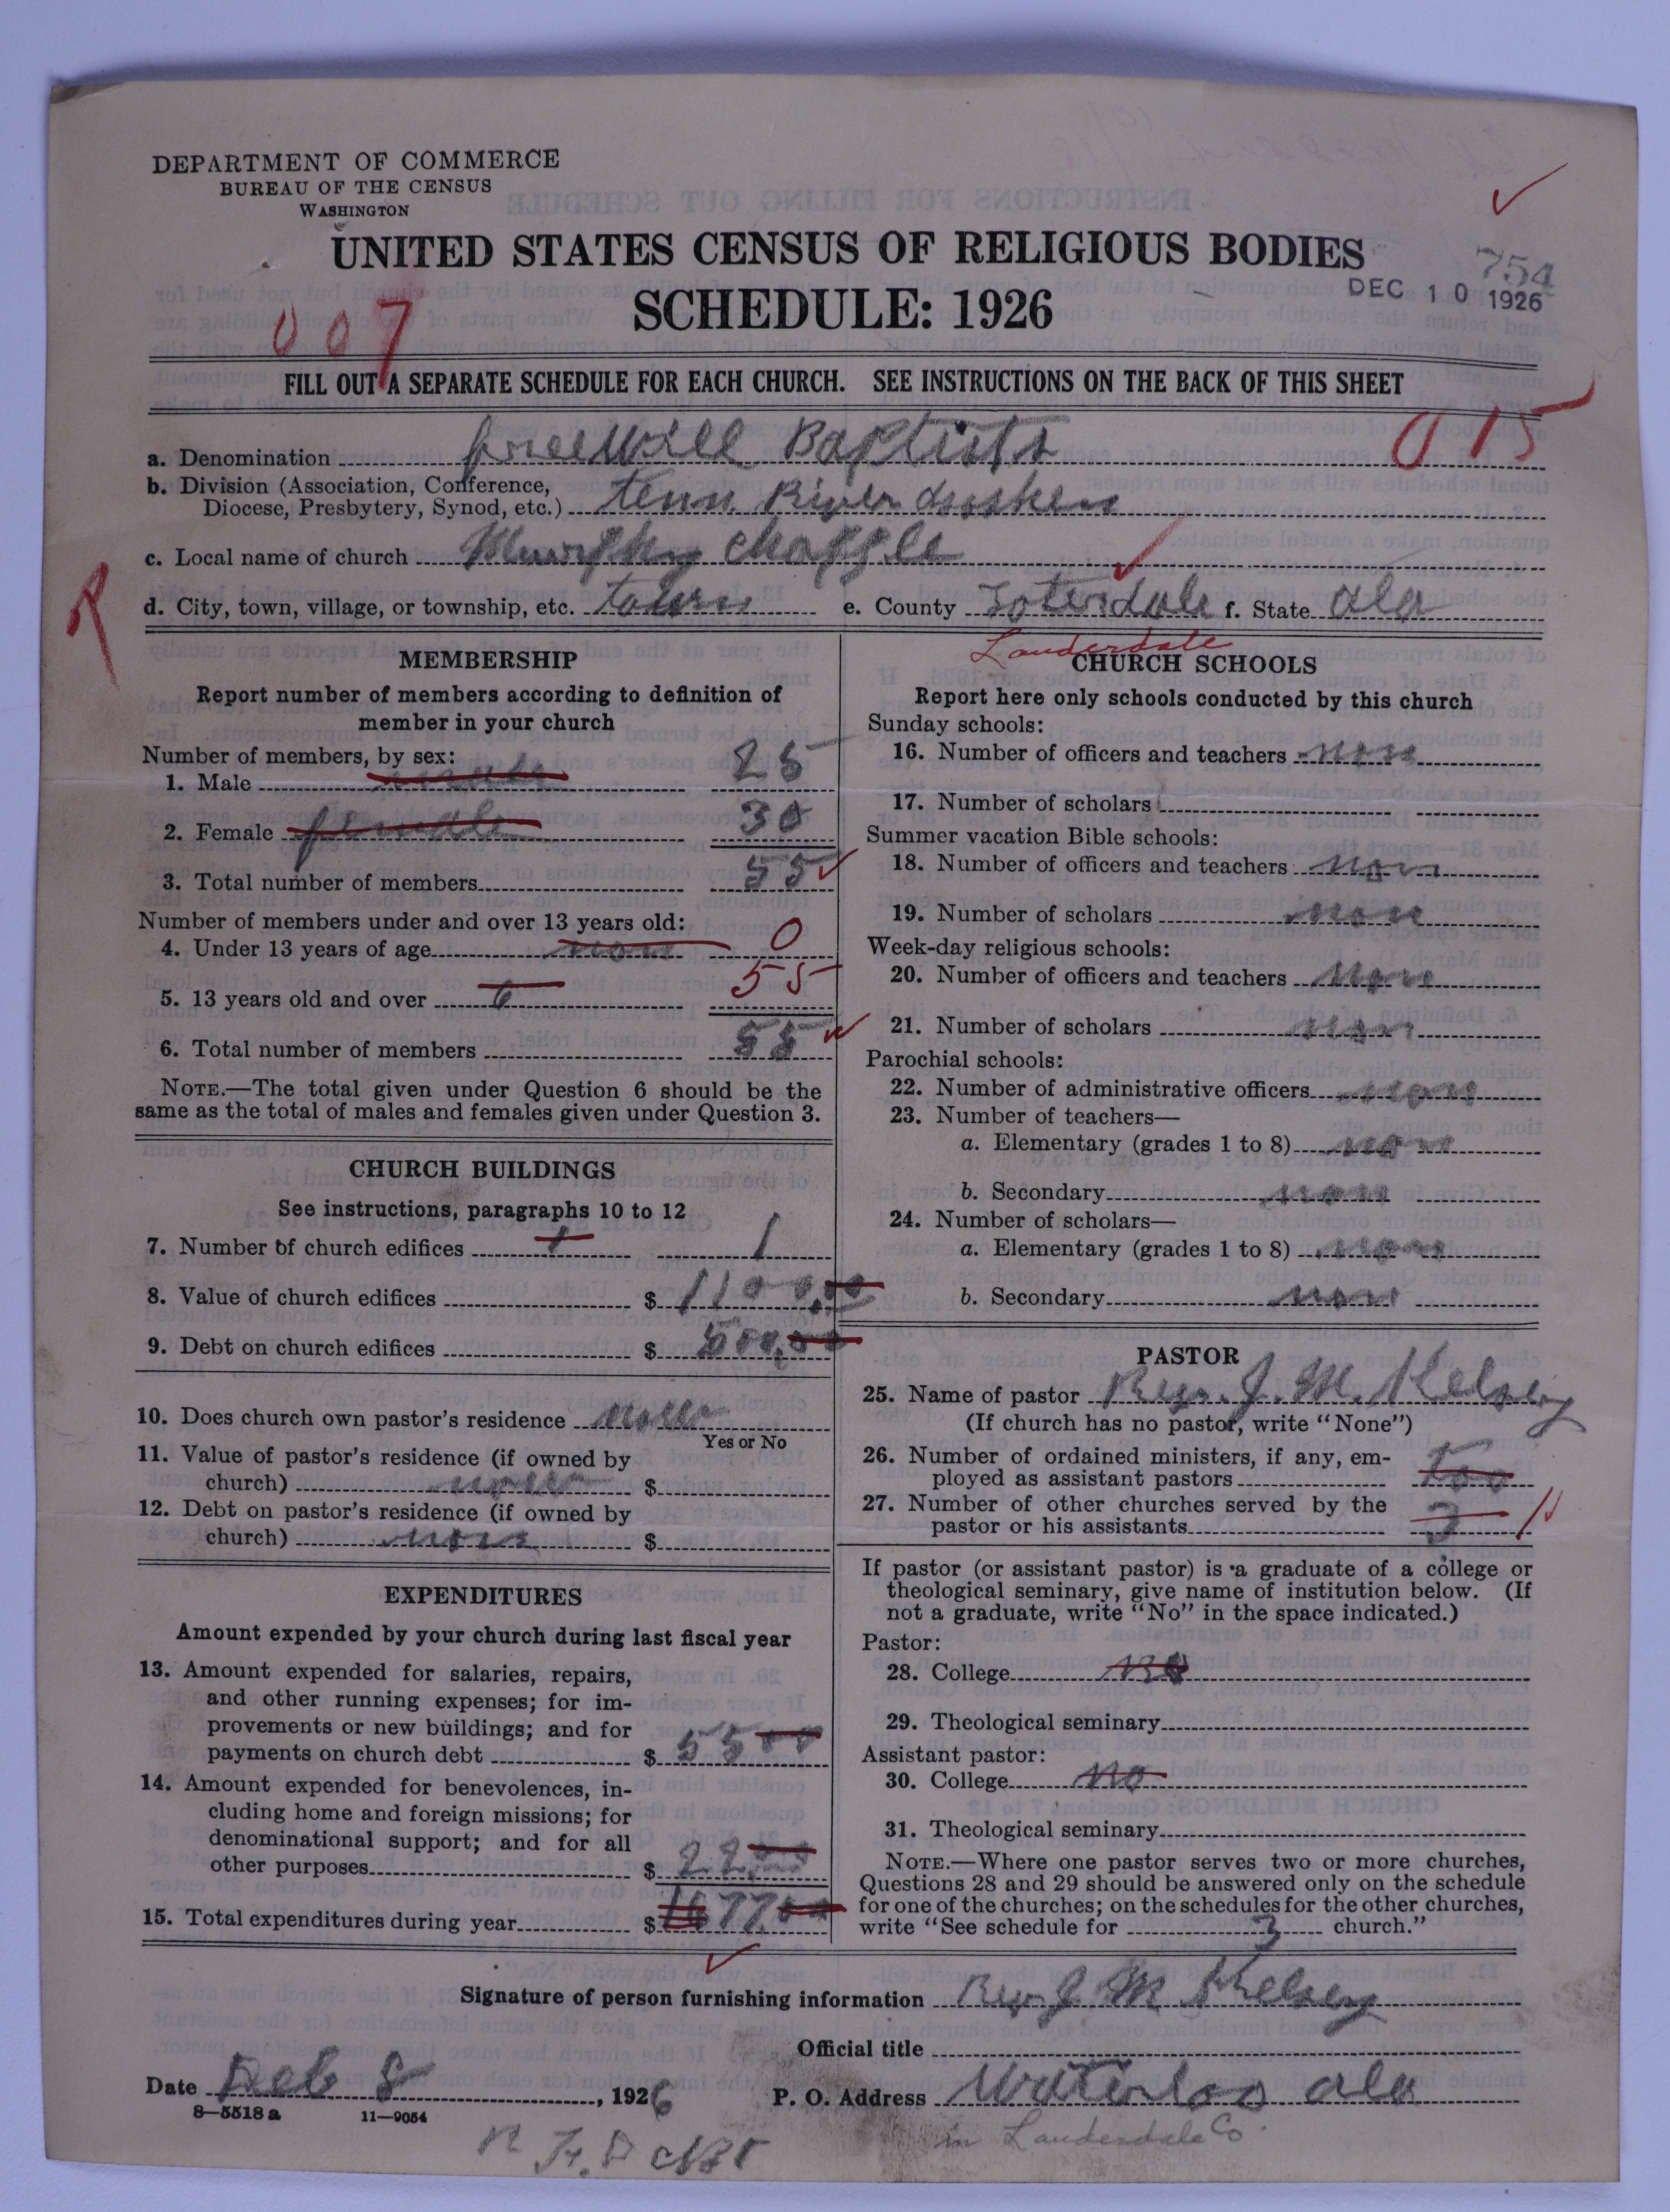 DEPARTMENT OF COMMERCE
BUREAU OF THE CENSUS
WASHINGTON
UNITED STATES CENSUS OF RELIGIOUS BODIES
754
SCHEDULE: 1926
DEC 10 1926
007
FILL OUT A SEPARATE SCHEDULE FOR EACH CHURCH. SEE INSTRUCTIONS ON THE BACK OF THIS SHEET
015
a. Denomination freeWill Baptists
b. Division (Association, Conference,
Diocese, Presbytery, Synod, etc.) tenn River
c. Local name of church Murphy Chapple
R
d. City, town, village, or township, etc. e. County f. State Ala
Lauderdale
MEMBERSHIP
Report number of members according to definition of
member in your church
Number of members, by sex:
1. Male male 25
2. Female female 30
3. Total number of members 55
Number of members under and over 13 years old:
4. Under 13 years of age none 0
5. 13 years old and over 6 55
6. Total number of members 55
NOTE.—The total given under Question 6 should be the
same as the total of males and females given under Question 3.
CHURCH BUILDINGS
See instructions, paragraphs 10 to 12
7. Number of church edifices 1 1
8. Value of church edifices $ 1100.00
9. Debt on church edifices $ 500.00
10. Does church own pastor's residence
Yes or No
11. Value of pastor's residence (if owned by
church) $
12. Debt on pastor's residence (if owned by
church) non $
EXPENDITURES
Amount expended by your church during last fiscal year
13. Amount expended for salaries, repairs,
and other running expenses; for im-
provements or new buildings; and for
payments on church debt $ 5500
14. Amount expended for benevolences, in-
cluding home and foreign missions; for
denominational support; and for all
other purposes $ 22.00
15. Total expenditures during year $ 77.00
CHURCH SCHOOLS
Report here only schools conducted by this church
Sunday schools:
16. Number of officers and teachers non
17. Number of scholars
Summer vacation Bible schools:
18. Number of officers and teachers non
19. Number of scholars non
Week-day religious schools:
20. Number of officers and teachers non
21. Number of scholars non
Parochial schools:
22. Number of administrative officers non
23. Number of teachers—
a. Elementary (grades 1 to 8) non
b. Secondary non
24. Number of scholars—
a. Elementary (grades 1 to 8) non
b. Secondary non
PASTOR
25. Name of pastor Rev. J. M. Kelsey
(If church has no pastor, write "None")
26. Number of ordained ministers, if any, em-
ployed as assistant pastors too
27. Number of other churches served by the
pastor or his assistants 3 1
If pastor (or assistant pastor) is a graduate of a college or
theological seminary, give name of institution below. (If
not a graduate, write "No" in the space indicated.)
Pastor:
28. College no
29. Theological seminary
Assistant pastor:
30. College no
31. Theological seminary
NOTE.—Where one pastor serves two or more churches,
Questions 28 and 29 should be answered only on the schedule
for one of the churches; on the schedules for the other churches,
write "See schedule for 3 church."
Signature of person furnishing information Rev J M Kelsey
Official title
Date Deb 8, 1926 P. O. Address Waterloo ala
8—5518 a 11—9054
in Lauderdale Co.